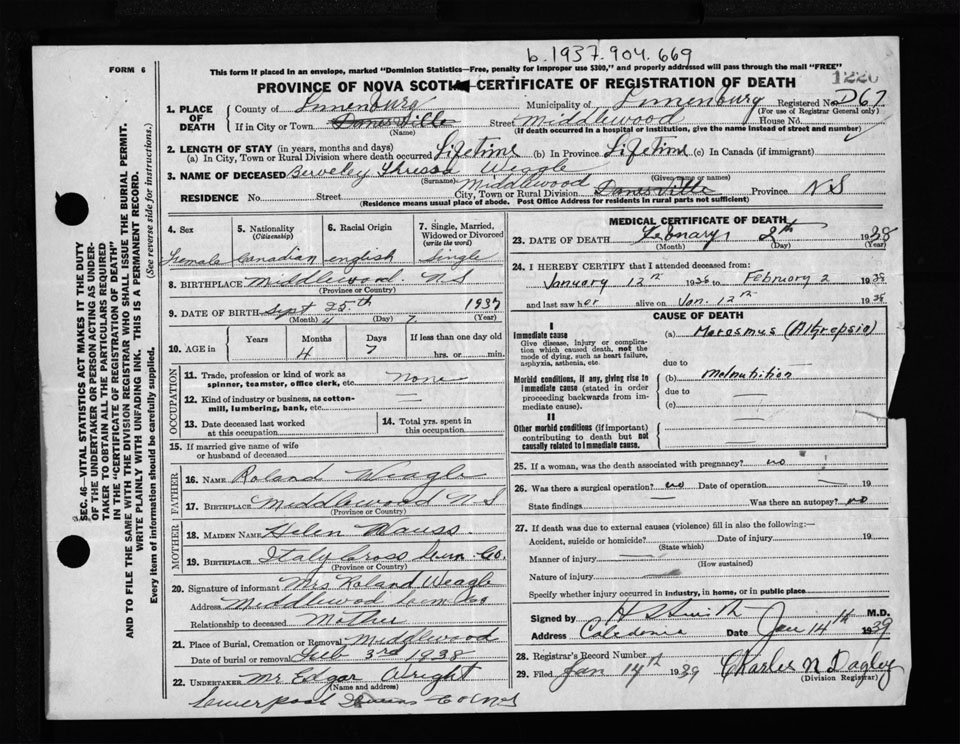 b.1937.904.669
FORM 6
This form if placed in an envelope, marked "Dominion Statistics—Free, penalty for improper use $300," and properly addressed will pass through the mail "FREE"
PROVINCE OF NOVA SCOTIA—CERTIFICATE OF REGISTRATION OF DEATH
1. PLACE OF DEATH
County of Lunenburg Municipality of Lunenburg Registered No. D67
(For use of Registrar General only)
If in City or Town Danesville Street Middlewood House No.
(Name) (If death occurred in a hospital or institution, give the name instead of street and number)
2. LENGTH OF STAY (in years, months and days)
(a) In City, Town or Rural Division where death occurred Lifetime (b) In Province Lifetime (c) In Canada (if immigrant)
3. NAME OF DECEASED Berveley Weagle
(Surname) (Given name or names)
RESIDENCE No. Street City, Town or Rural Division Middlewood Danesville Province NS
(Residence means usual place of abode. Post Office Address for residents in rural parts not sufficient)
4. Sex Female
5. Nationality (Citizenship) Canadian
6. Racial Origin english
7. Single, Married, Widowed or Divorced (write the word) Single
8. BIRTHPLACE Middlewood. N.S
(Province or Country)
9. DATE OF BIRTH Sept 25th 1937
(Month) 4 (Day) 7 (Year)
10. AGE in Years Months 4 Days 7 If less than one day old hrs. or min.
OCCUPATION
11. Trade, profession or kind of work as spinner, teamster, office clerk, etc. none
12. Kind of industry or business, as cotton-mill, lumbering, bank, etc.
13. Date deceased last worked at this occupation
14. Total yrs. spent in this occupation
15. If married give name of wife or husband of deceased
FATHER
16. NAME Roland Weagle
17. BIRTHPLACE Middlewood N S
(Province or Country)
MOTHER
18. MAIDEN NAME Helen
19. BIRTHPLACE Italy Cross Lun. Co.
(Province or Country)
20. Signature of informant Mrs Roland Weagle
Address Middlewood Lun Co
Relationship to deceased Mother
21. Place of Burial, Cremation or Removal Middlewood
Date of burial or removal Feb 3rd 1938
22. UNDERTAKER Mr Edgar Wright
(Name and address)
Liverpool Queens Co N S
MEDICAL CERTIFICATE OF DEATH
23. DATE OF DEATH February 2th 1938
(Month) (Day) (Year)
24. I HEREBY CERTIFY that I attended deceased from:
January 12th 1938 to February 2 1938
and last saw her alive on Jan. 12th 1938
CAUSE OF DEATH
I
Immediate cause
Give disease, injury or complication which caused death, not the mode of dying, such as heart failure, asphyxia, asthenia, etc.
(a) Marasmus (Athrepsia)
due to
Morbid conditions, if any, giving rise to immediate cause (stated in order proceeding backwards from immediate cause).
(b) Malnutrition
due to
(c)
II
Other morbid conditions (if important) contributing to death but not causally related to immediate cause.
25. If a woman, was the death associated with pregnancy? no
26. Was there a surgical operation? no Date of operation 19
State findings Was there an autopsy? no
27. If death was due to external causes (violence) fill in also the following:—
Accident, suicide or homicide? Date of injury 19
(State which)
Manner of injury
(How sustained)
Nature of injury
Specify whether injury occurred in industry, in home, or in public place
Signed by H S Smith M.D.
Address Caledonia Date Jan 14th 1939
28. Registrar's Record Number
29. Filed Jan 14th 1939 Charles N Dagley
(Division Registrar)
SEC. 46—VITAL STATISTICS ACT MAKES IT THE DUTY
OF THE UNDERTAKER OR PERSON ACTING AS UNDER-
TAKER TO OBTAIN ALL THE PARTICULARS REQUIRED
IN THE "CERTIFICATE OF REGISTRATION OF DEATH"
AND TO FILE THE SAME WITH THE DIVISION REGISTRAR WHO SHALL ISSUE THE BURIAL PERMIT.
WRITE PLAINLY WITH UNFADING INK. THIS IS A PERMANENT RECORD.
Every item of information should be carefully supplied. (See reverse side for instructions.)